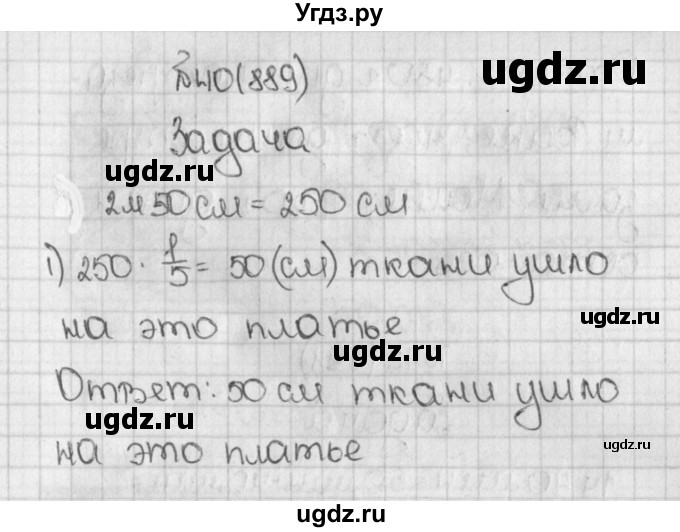 Угдз.ру
ugdz.ru
№410(889)
Задача
ugdz.ru
2м 50 см = 250 см
1) 250 · 1/5 = 50 (см) ткани ушло
ugdz.ru
на это платье
ugdz.ru
Ответ: 50 см ткани ушло
ugdz.ru
на это платье
ugdz.ru
ugdz.ru